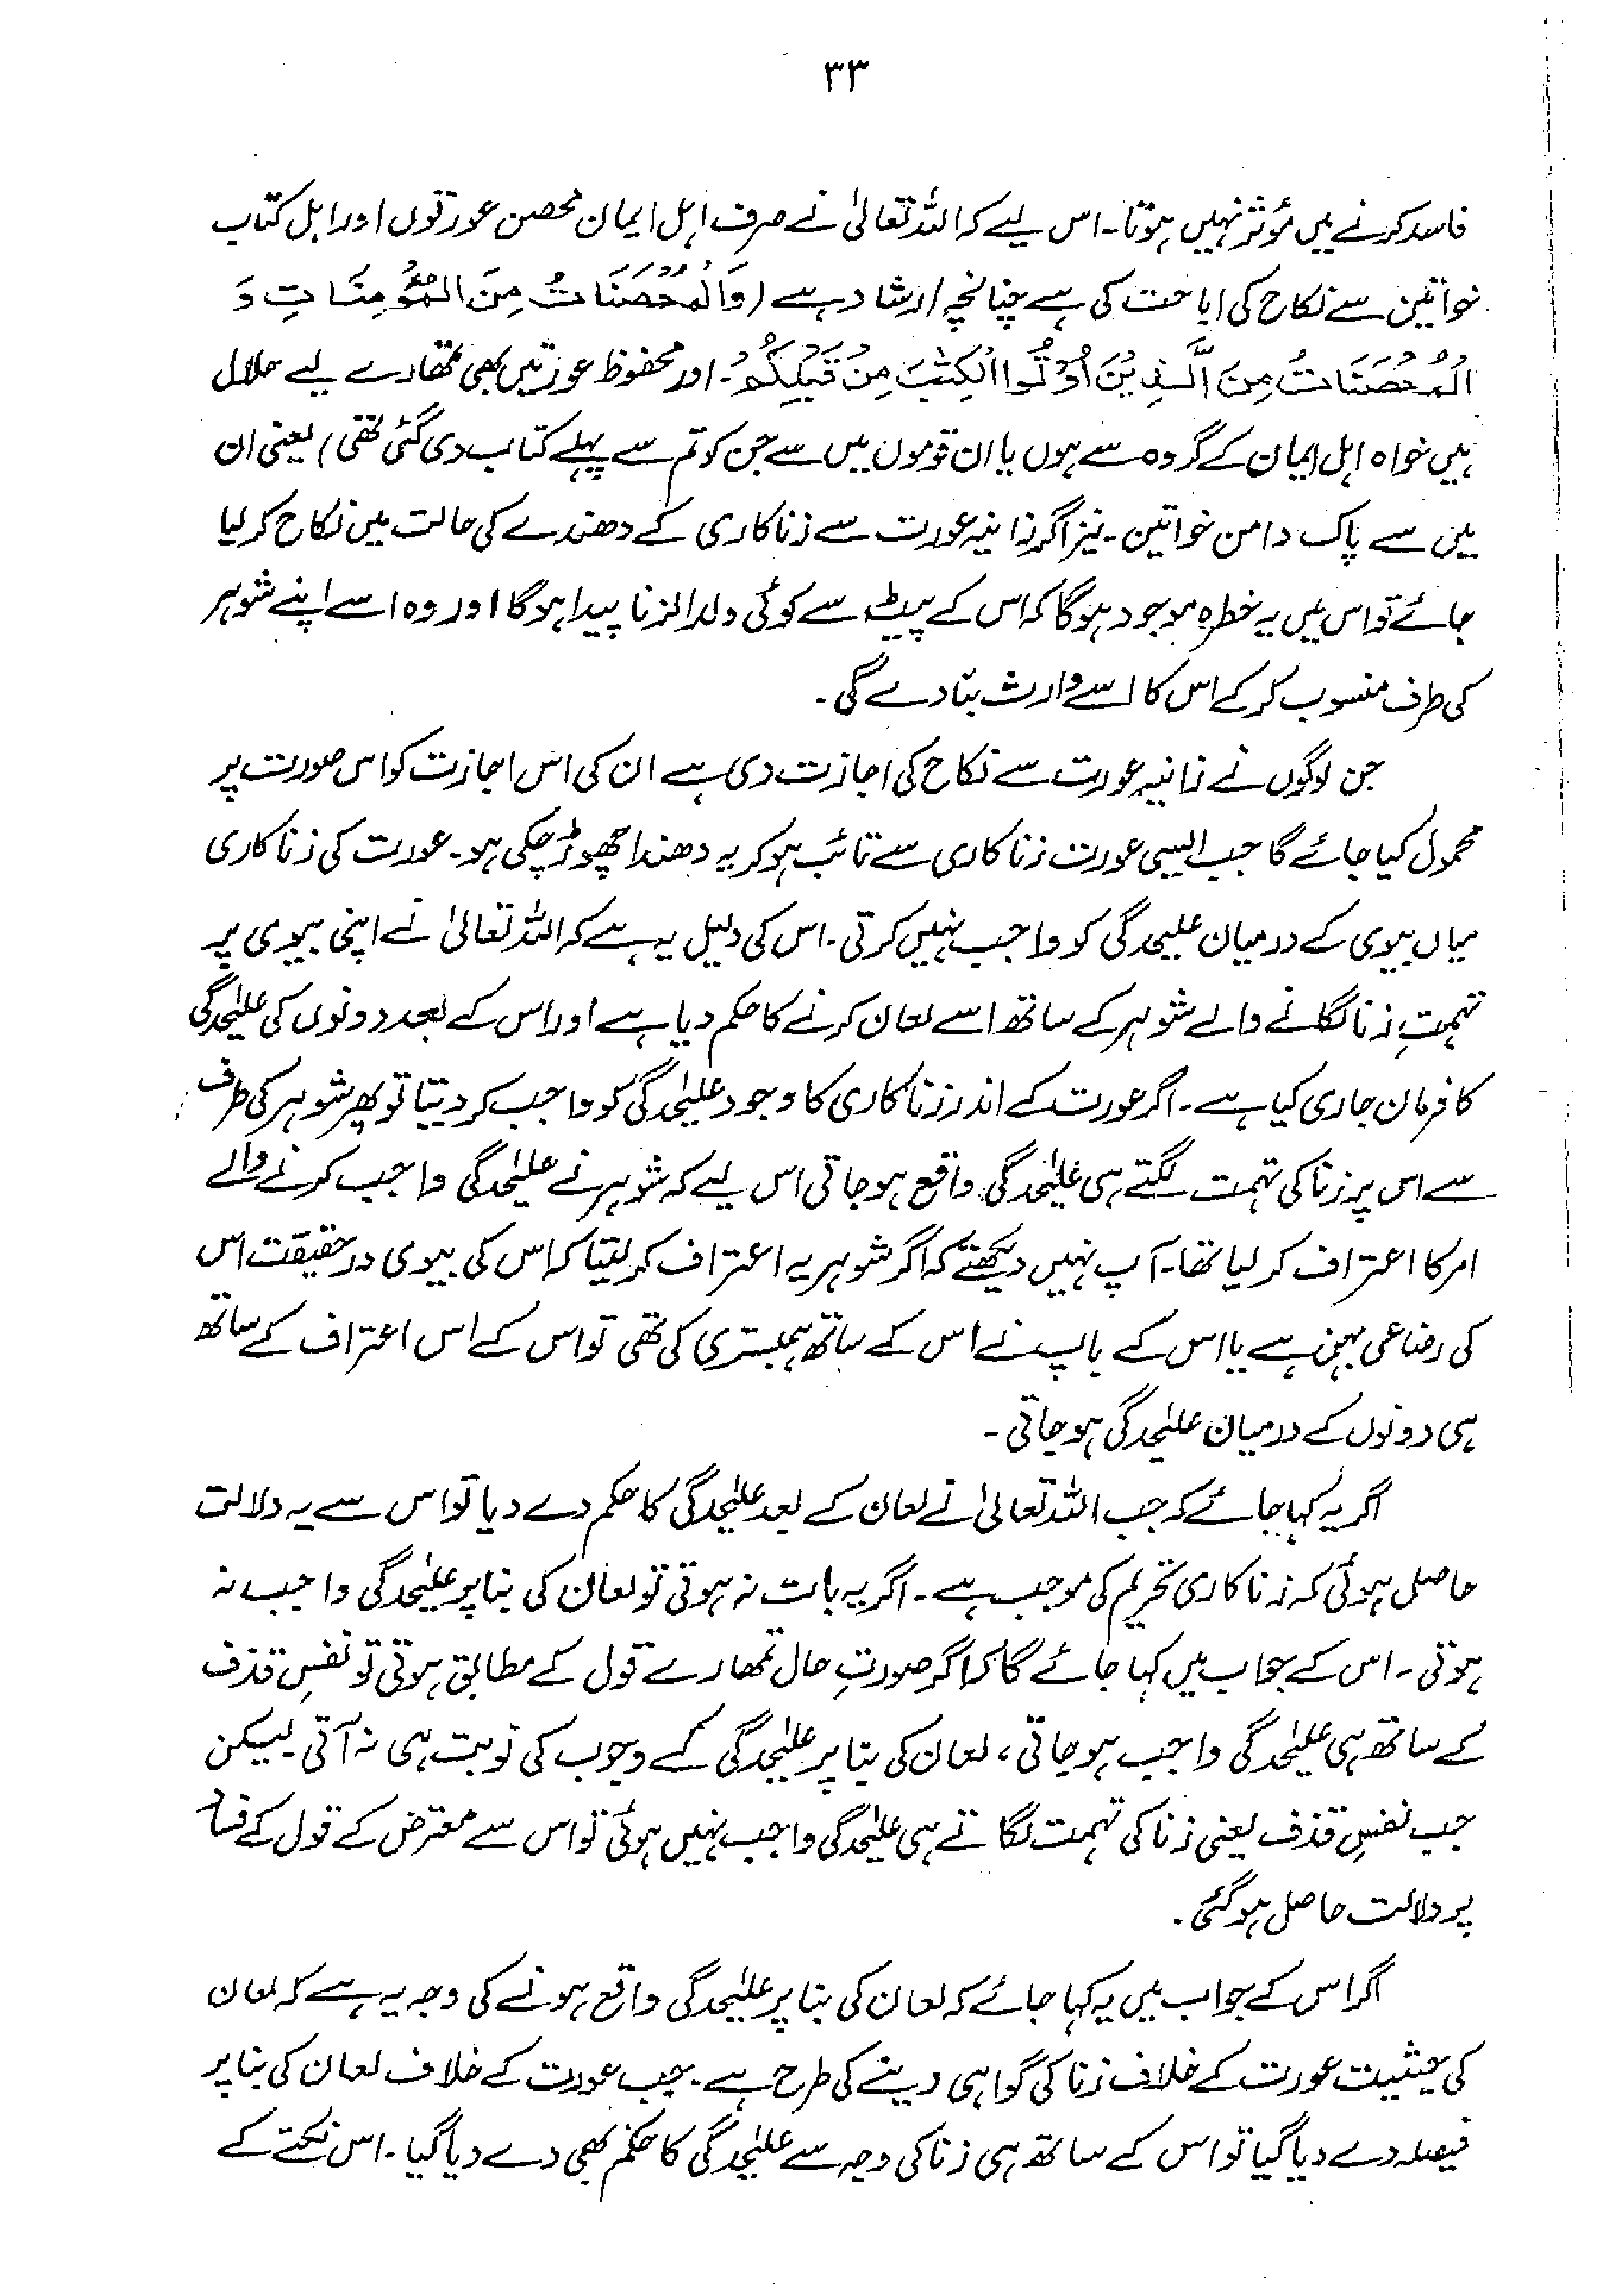 ۳۳
فاسد کرنے میں مؤثر نہیں ہوتا۔ اس لیے کہ اللہ تعالیٰ نے صرف اہل ایمان محصن عورتوں اور اہل کتاب
خواتین سے نکاح کی اباحت کی ہے چنانچہ ارشاد ہے (وَالْمُحْصَنَاتُ مِنَ الْمُؤْمِنَاتِ وَ
الْمُحْصَنَاتُ مِنَ الَّذِیْنَ اُوْتُوا الْکِتٰبَ مِنْ قَبْلِکُمْ۔ اور محفوظ عورتیں بھی تمھارے لیے حلال
ہیں خواہ اہل ایمان کے گروہ سے ہوں یا ان قوموں میں سے جن کو تم سے پہلے کتاب دی گئی تھی) یعنی ان
میں سے پاک دامن خواتین۔ نیز اگر زانیہ عورت سے زنا کاری کے دھندے کی حالت میں نکاح کر لیا
جائے تو اس میں یہ خطرہ موجود ہوگا کہ اس کے پیٹ سے کوئی ولد الزنا پیدا ہوگا اور وہ اسے اپنے شوہر
کی طرف منسوب کر کے اس کا اسے وارث بنا دے گی۔
جن لوگوں نے زانیہ عورت سے نکاح کی اجازت دی ہے ان کی اس اجازت کو اس صورت پر
محمول کیا جائے گا جب ایسی عورت زنا کاری سے تائب ہو کر یہ دھندا چھوڑ چکی ہو۔ عورت کی زنا کاری
میاں بیوی کے درمیان علیحدگی کو واجب نہیں کرتی۔ اس کی دلیل یہ ہے کہ اللہ تعالیٰ نے اپنی بیوی پر
تہمتِ زنا لگانے والے شوہر کے ساتھ اسے لعان کرنے کا حکم دیا ہے اور اس کے بعد دونوں کی علیٰحدگی
کا فرمان جاری کیا ہے۔ اگر عورت کے اندر زنا کاری کا وجود علیٰحدگی کو واجب کر دیتا تو پھر شوہر کی طرف
سے اس پر زنا کی تہمت لگتے ہی علیٰحدگی واقع ہو جاتی اس لیے کہ شوہر نے علیٰحدگی واجب کرنے والے
امر کا اعتراف کر لیا تھا۔ آپ نہیں دیکھتے کہ اگر شوہر یہ اعتراف کر لیتا کہ اس کی بیوی در حقیقت اس
کی رضاعی بہن ہے یا اس کے باپ نے اس کے ساتھ ہمبستری کی تھی تو اس کے اس اعتراف کے ساتھ
ہی دونوں کے درمیان علیٰحدگی ہو جاتی۔
اگر یہ کہا جائے کہ جب اللہ تعالیٰ نے لعان کے بعد علیٰحدگی کا حکم دے دیا تو اس سے یہ دلالت
حاصل ہوئی کہ زنا کاری تحریم کی موجب ہے۔ اگر یہ بات نہ ہوتی تو لعان کی بنا پر علیٰحدگی واجب نہ
ہوتی۔ اس کے جواب میں کہا جائے گا کہ اگر صورتِ حال تمھارے قول کے مطابق ہوتی تو نفسِ قذف
کے ساتھ ہی علیٰحدگی واجب ہو جاتی، لعان کی بنا پر علیٰحدگی کے وجوب کی نوبت ہی نہ آتی۔ لیکن
جب نفسِ قذف یعنی زنا کی تہمت لگاتے ہی علیٰحدگی واجب نہیں ہوئی تو اس سے معترض کے قول کے فساد
پر دلالت حاصل ہو گئی۔
اگر اس کے جواب میں یہ کہا جائے کہ لعان کی بنا پر علیٰحدگی واقع ہونے کی وجہ یہ ہے کہ لعان
کی حیثیت عورت کے خلاف زنا کی گواہی دینے کی طرح ہے۔ جب عورت کے خلاف لعان کی بنا پر
فیصلہ دے دیا گیا تو اس کے ساتھ ہی زنا کی وجہ سے علیٰحدگی کا حکم بھی دے دیا گیا۔ اس نکتے کے